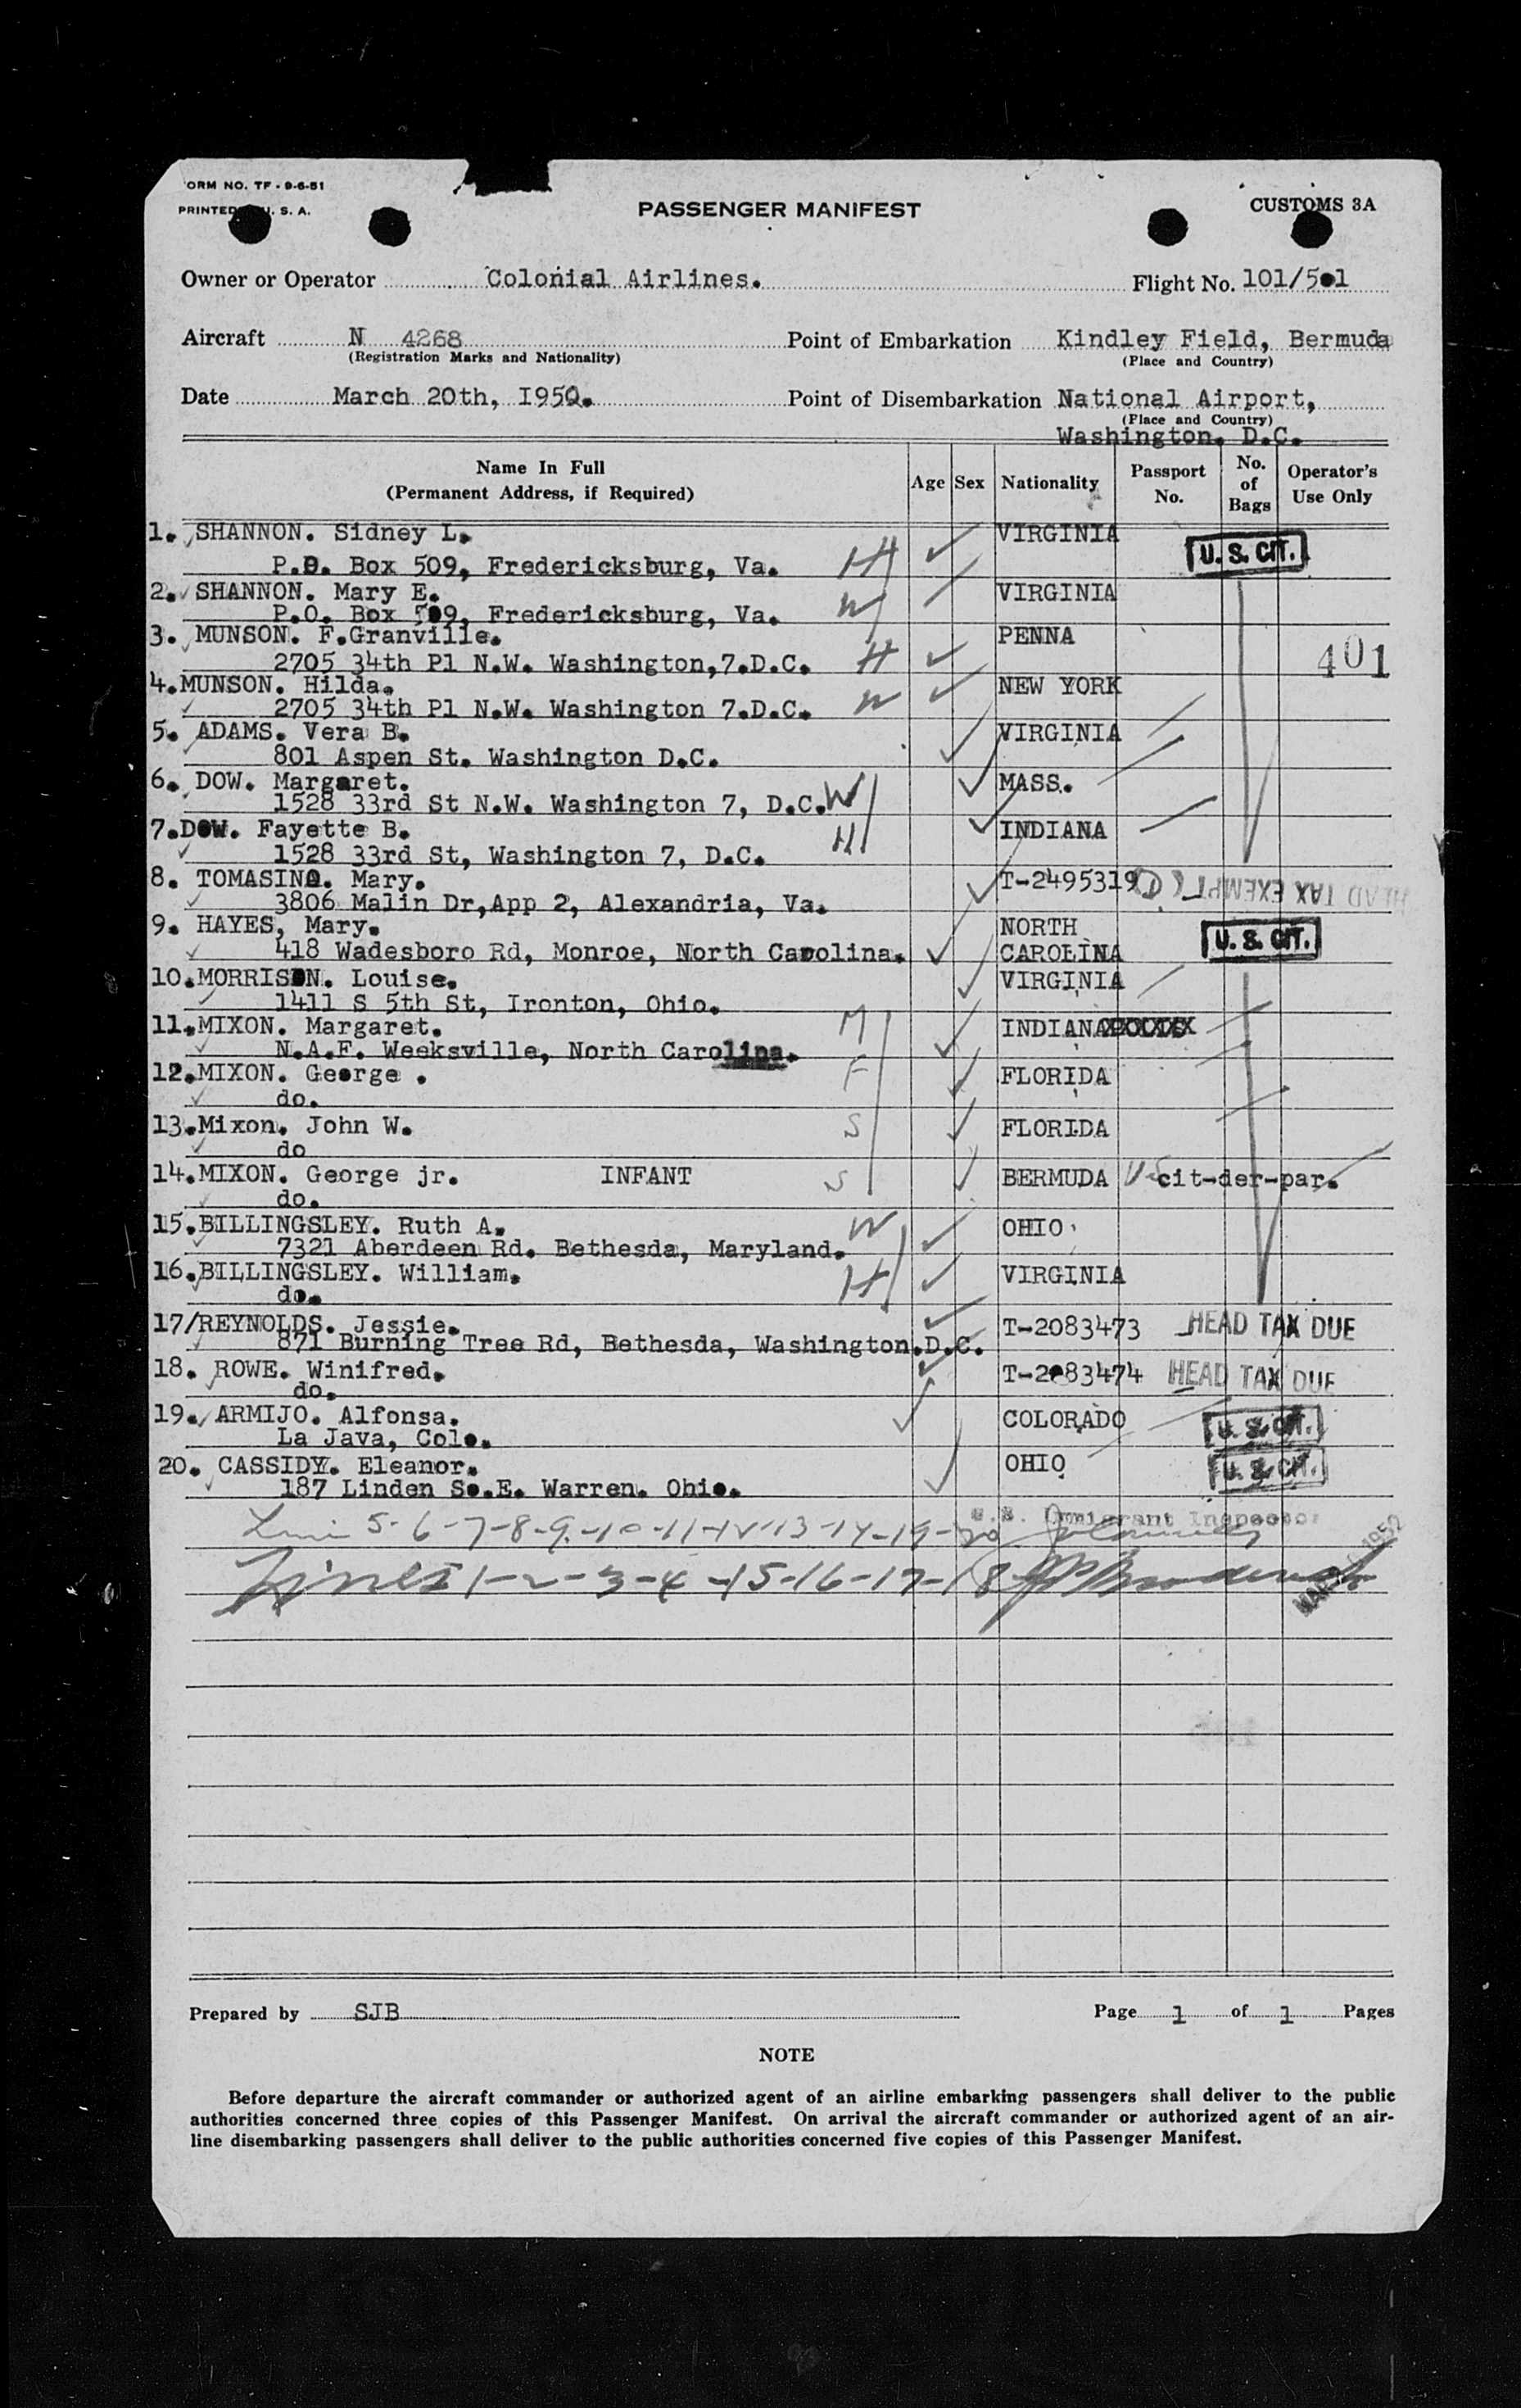 ORM NO. TF - 9-6-51
PRINTED U. S. A.
PASSENGER MANIFEST
CUSTOMS 3A
Owner or Operator Colonial Airlines. Flight No. 101/501
Aircraft N 4268 Point of Embarkation Kindley Field, Bermuda
(Registration Marks and Nationality) (Place and Country)
Date March 20th, I950. Point of Disembarkation National Airport,
(Place and Country)
Washington. D.C.
Name In Full
(Permanent Address, if Required)
Age Sex Nationality Passport No. No. of Bags Operator's Use Only
1. SHANNON. Sidney L. VIRGINIA
P.O. Box 509, Fredericksburg, Va. H U. S. CIT.
2. SHANNON. Mary E. VIRGINIA
P.O. Box 509, Fredericksburg, Va. W
3. MUNSON. F.Granville. PENNA
2705 34th Pl N.W. Washington,7.D.C. H 401
4. MUNSON. Hilda. NEW YORK
2705 34th Pl N.W. Washington 7.D.C. W
5. ADAMS. Vera B. VIRGINIA
801 Aspen St. Washington D.C.
6. DOW. Margaret. MASS.
1528 33rd St N.W. Washington 7, D.C. W
7.DOW. Fayette B. INDIANA
1528 33rd St, Washington 7, D.C. H
8. TOMASINO. Mary. T-2495319 HEAD TAX EXEMPT
3806 Malin Dr,App 2, Alexandria, Va.
9. HAYES, Mary. NORTH
418 Wadesboro Rd, Monroe, North Carolina. CAROLINA U. S. CIT.
10.MORRISON. Louise. VIRGINIA
1411 S 5th St, Ironton, Ohio.
11.MIXON. Margaret. M INDIANA
N.A.F. Weeksville, North Carolina.
12.MIXON. George . F FLORIDA
do.
13.Mixon. John W. S FLORIDA
do
14.MIXON. George jr. INFANT S BERMUDA US cit-der-par.
do.
15.BILLINGSLEY. Ruth A. W OHIO
7321 Aberdeen Rd. Bethesda, Maryland.
16.BILLINGSLEY. William. H VIRGINIA
do.
17/REYNOLDS. Jessie. T-2083473 HEAD TAX DUE
871 Burning Tree Rd, Bethesda, Washington.D.C.
18. ROWE. Winifred. T-2083474 HEAD TAX DUE
do.
19. ARMIJO. Alfonsa. COLORADO U. S. CIT.
La Java, Colo.
20. CASSIDY. Eleanor. OHIO U. S. CIT.
187 Linden So.E. Warren. Ohio.
5-6-7-8-9-10-11-12-13-14-19-20 U.S. Immigrant Inspector
Lines 1-2-3-4-15-16-17-18
Prepared by SJB Page 1 of 1 Pages
NOTE
Before departure the aircraft commander or authorized agent of an airline embarking passengers shall deliver to the public
authorities concerned three copies of this Passenger Manifest. On arrival the aircraft commander or authorized agent of an air-
line disembarking passengers shall deliver to the public authorities concerned five copies of this Passenger Manifest.